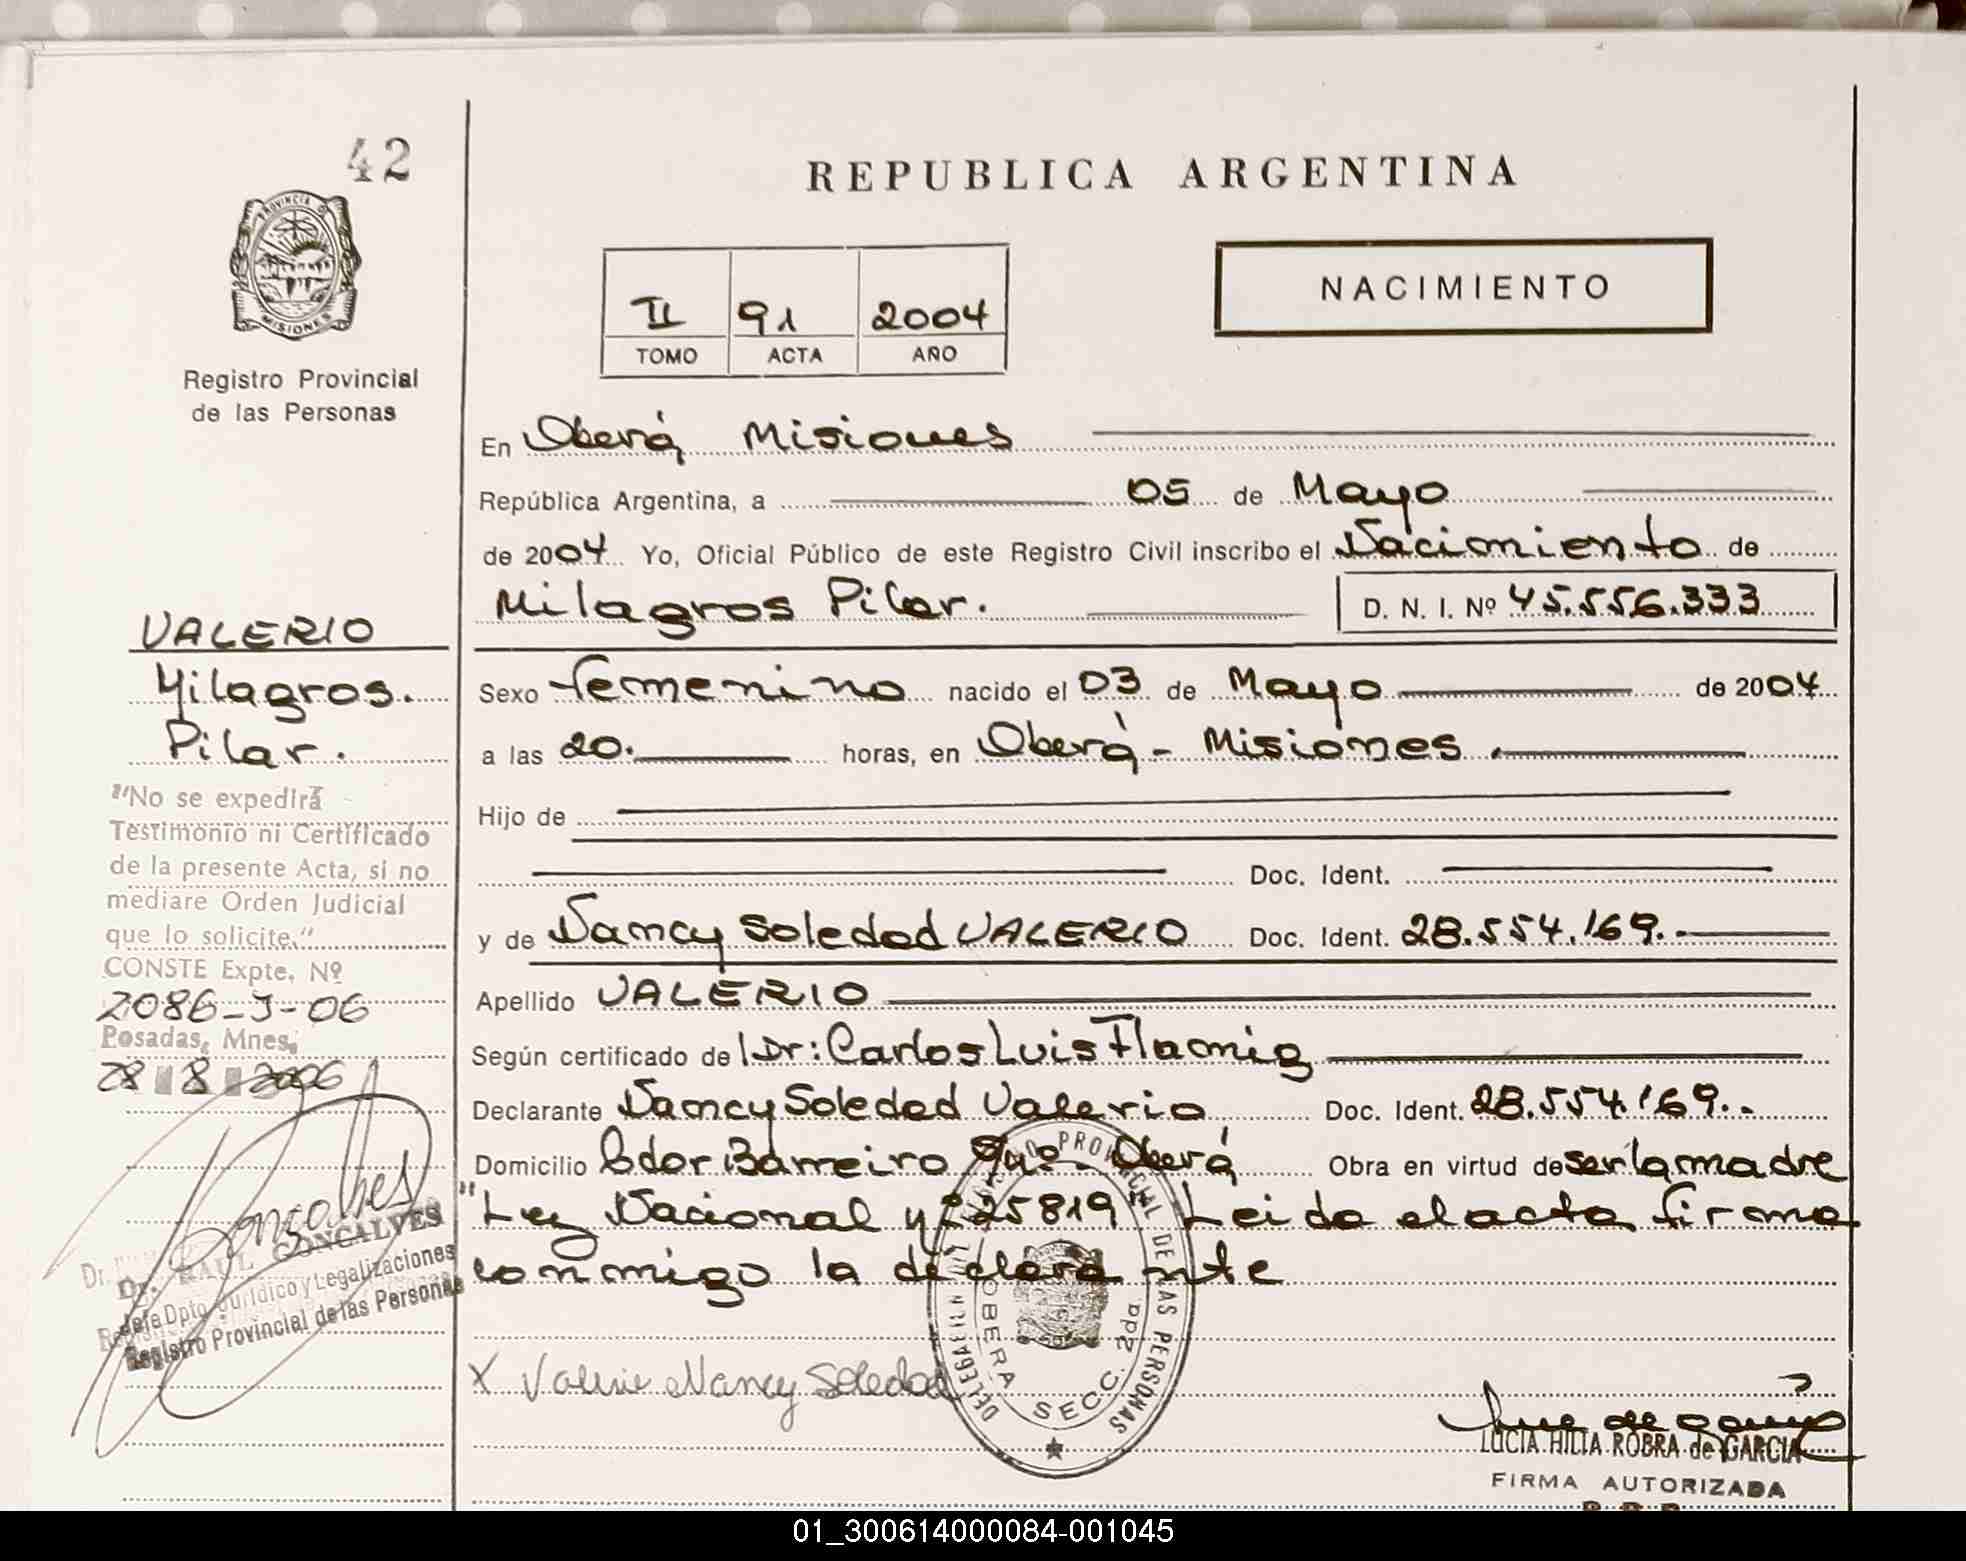 42
REPUBLICA ARGENTINA
PROVINCIA D
MISIONES
Registro Provincial
de las Personas
II 91 2004
TOMO ACTA AÑO
NACIMIENTO
En Oberá Misiones
República Argentina, a 05 de Mayo
de 2004 Yo, Oficial Público de este Registro Civil inscribo el Nacimiento de
Milagros Pilar. D. N. I. Nº 45.556.333
Sexo femenino nacido el 03 de Mayo de 2004
a las 20. horas, en Oberá - Misiones.
Hijo de
Doc. Ident.
y de Nancy Soledad VALERIO Doc. Ident. 28.554.169.-
Apellido VALERIO
Según certificado de Dr: Carlos Luis Flamig
Declarante Nancy Soledad Valerio Doc. Ident. 28.554.169.-
Domicilio Cdor Barreiro Oberá Obra en virtud de ser la madre
"Ley Nacional nº 25819" Leido el acta firma
conmigo la declarante
X Valerio Nancy Soledad
VALERIO
Milagros.
Pilar.
"No se expedirá
Testimonio ni Certificado
de la presente Acta, si no
mediare Orden Judicial
que lo solicite."
CONSTE Expte. Nº
2086-J-06
Posadas, Mnes,
28 8 2006
Goncalves
Dr. RAUL GONCALVES
Jefe Dpto. Jurídico y Legalizaciones
Registro Provincial de las Personas
PROVINCIAL DE LAS PERSONAS
OBERA SECC. 2da.
LUCIA HILIA ROBRA de GARCIA
FIRMA AUTORIZADA
01_300614000084-001045